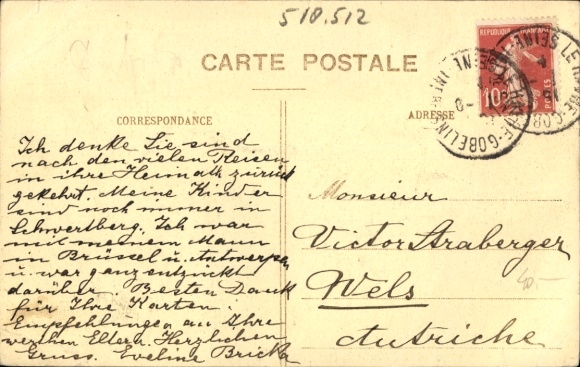 510.512
CARTE POSTALE
CORRESPONDANCE
ADRESSE
REPUBLIQUE FRANCAISE
10
POSTES
LE HAVRE-GOBELINS
SEINE INFRE
Ich denke Sie sind
nach den vielen Reisen
in ihre Heimath zurück
gekehrt. Meine Kinder
sind noch immer in
Schwertberg. Ich war
mit meinem Mann
in Brüssel u. Antwerpen
u. war ganz entzückt
darüber. Besten Dank
für Ihre Karten.
Empfehlungen an Ihre
werthen Eltern. Herzlichen
Gruss. Eveline Bricka
Monsieur
Victor Straberger
Wels
Autriche
40.-